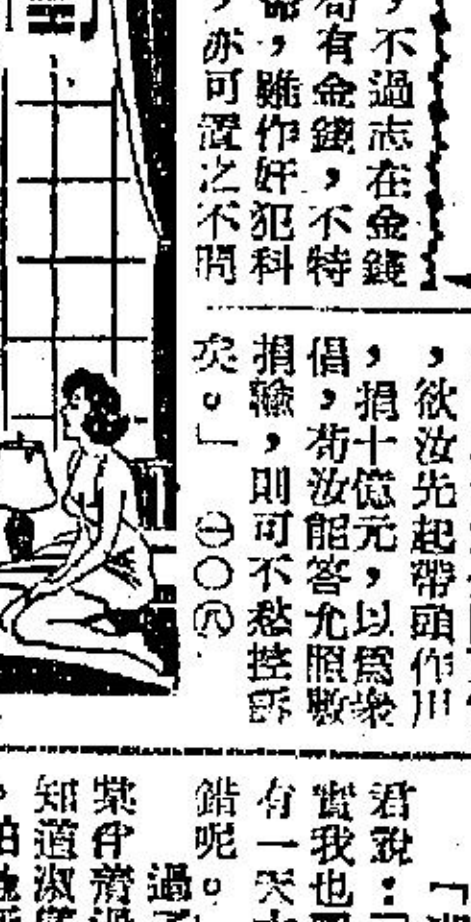 ，不過志在金錢
苟有金錢，不特
，雖作奸犯科
，亦可置之不問
，欲汝先起帶頭作用
，捐十億元，以爲衆
倡，苟汝能答允照數
捐輸，則可不愁控訴
矣。」　㊀〇㊇
君說：「
我也
有一天
錯呢。
過
某件
知道淑